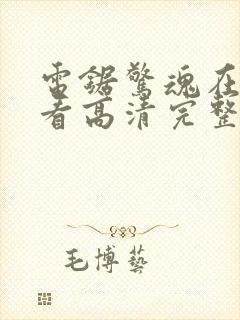 雷鋸驚魂在
看高清完整
毛博藝